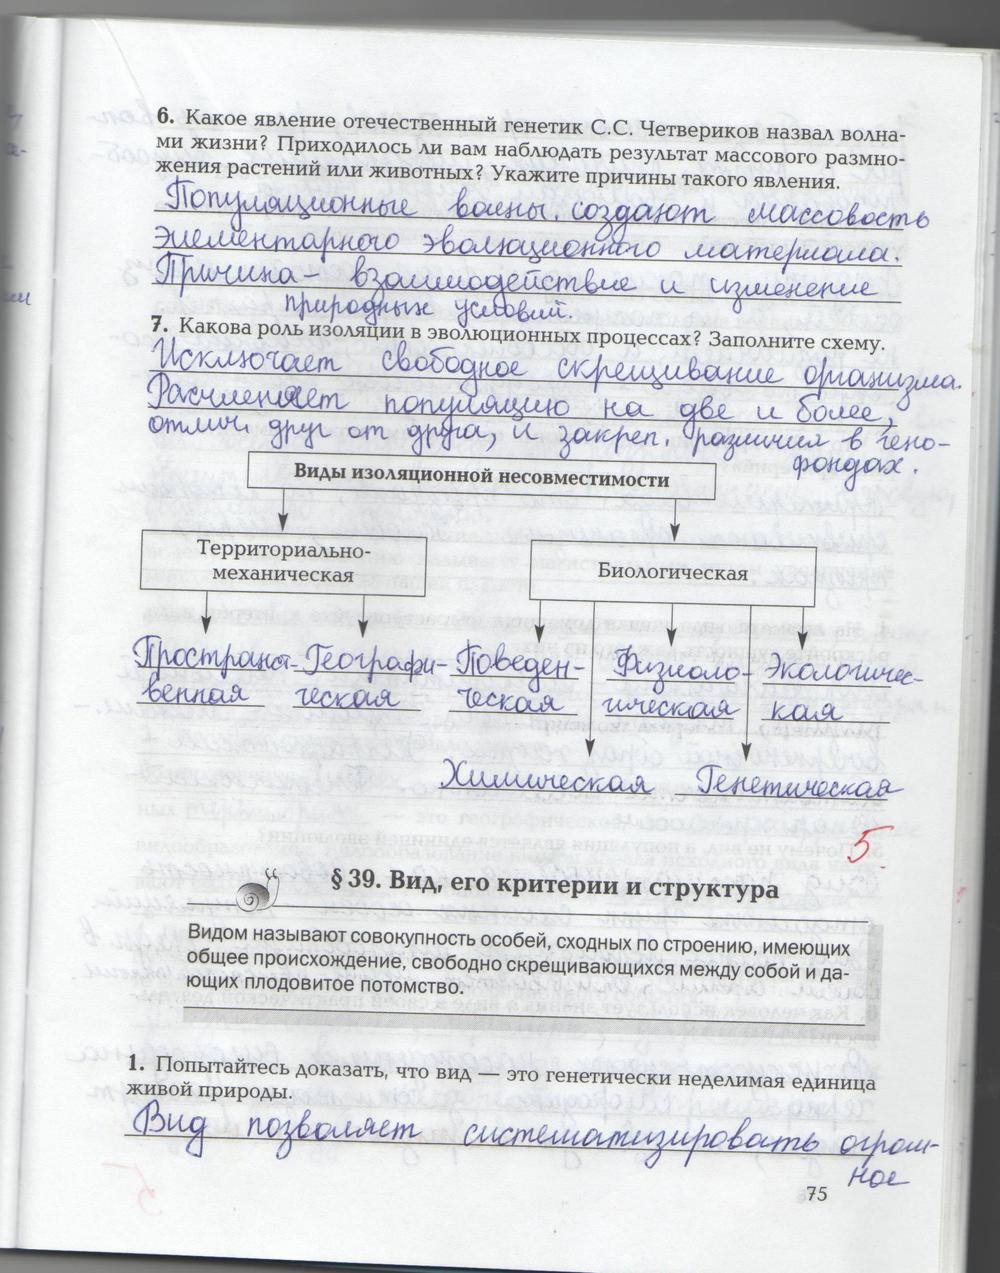 6. Какое явление отечественный генетик С.С. Четвериков назвал волна-
ми жизни? Приходилось ли вам наблюдать результат массового размно-
жения растений или животных? Укажите причины такого явления.
Популяционные волны. создают массовость
элементарного эволюционного материала.
Причина – взаимодействие и изменение
природных условий.
7. Какова роль изоляции в эволюционных процессах? Заполните схему.
Исключает свободное скрещивание организма.
Расчленяет популяцию на две и более,
отлич. друг от друга, и закреп. различия в гено-
фондах.
Виды изоляционной несовместимости
Территориально-
механическая
Биологическая
Пространст-
венная
Географи-
ческая
Поведен-
ческая
Физиоло-
гическая
Экологичес-
кая
Химическая
Генетическая
5
§ 39. Вид, его критерии и структура
Видом называют совокупность особей, сходных по строению, имеющих
общее происхождение, свободно скрещивающихся между собой и да-
ющих плодовитое потомство.
1. Попытайтесь доказать, что вид — это генетически неделимая единица
живой природы.
Вид позволяет систематизировать огром-
ное
75